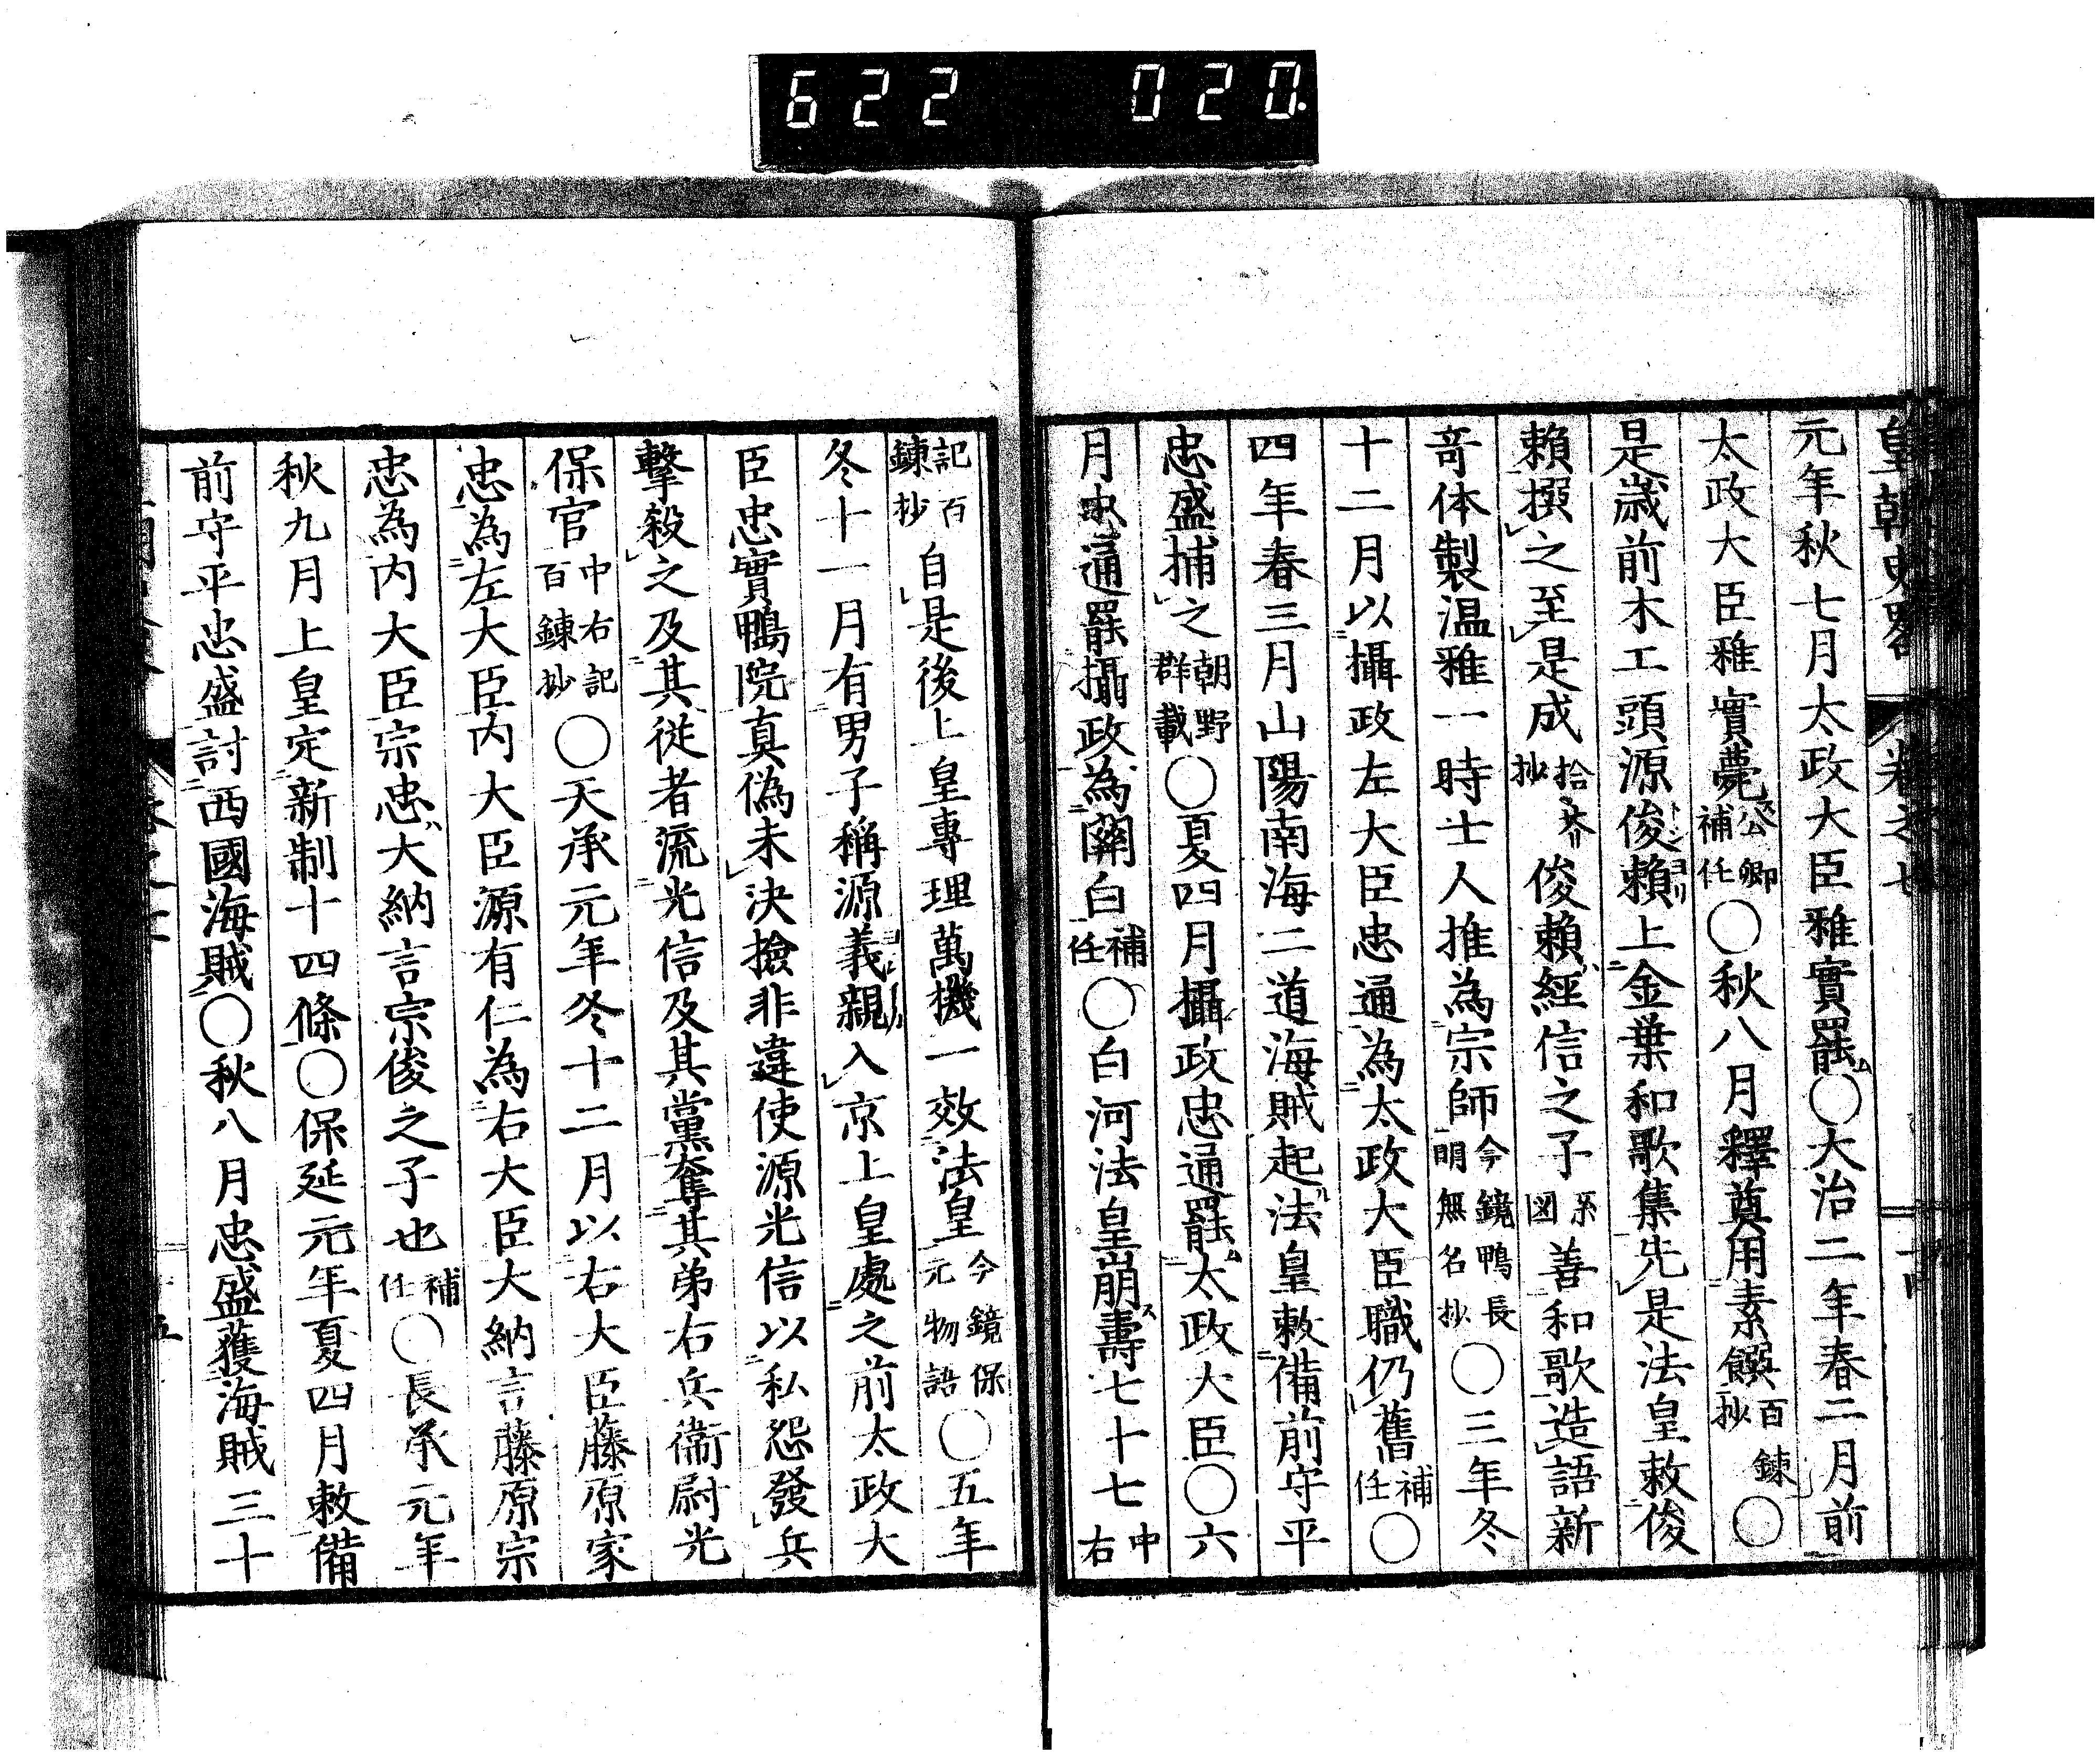 622 020
皇朝史畧 卷之七
元年秋七月太政大臣雅實罷○大治二年春二月前
太政大臣雅實薨公卿補任○秋八月釋奠用素饌百錬抄○
是歳前木工頭源俊頼上金葉和歌集先是法皇敕俊
頼撰之至是成拾芥抄俊頼經信之子系図善和歌造語新
竒体製温雅一時士人推為宗師今鏡鴨長明無名抄○三年冬
十二月以攝政左大臣忠通為太政大臣職仍舊補任○
四年春三月山陽南海二道海賊起法皇敕備前守平
忠盛捕之朝野群載○夏四月攝政忠通罷太政大臣○六
月忠通罷攝政為關白補任○白河法皇崩壽七十七中右
記百錬抄自是後上皇專理萬機一效法皇今鏡保元物語○五年
冬十一月有男子稱源義親入京上皇處之前太政大
臣忠實鴨院真偽未決撿非違使源光信以私怨發兵
擊殺之及其從者流光信及其黨奪其弟右兵衞尉光
保官中右記百錬抄○天承元年冬十二月以右大臣藤原家
忠為左大臣内大臣源有仁為右大臣大納言藤原宗
忠為内大臣宗忠大納言宗俊之子也補任○長承元年
秋九月上皇定新制十四條○保延元年夏四月敕備
前守平忠盛討西國海賊○秋八月忠盛獲海賊三十